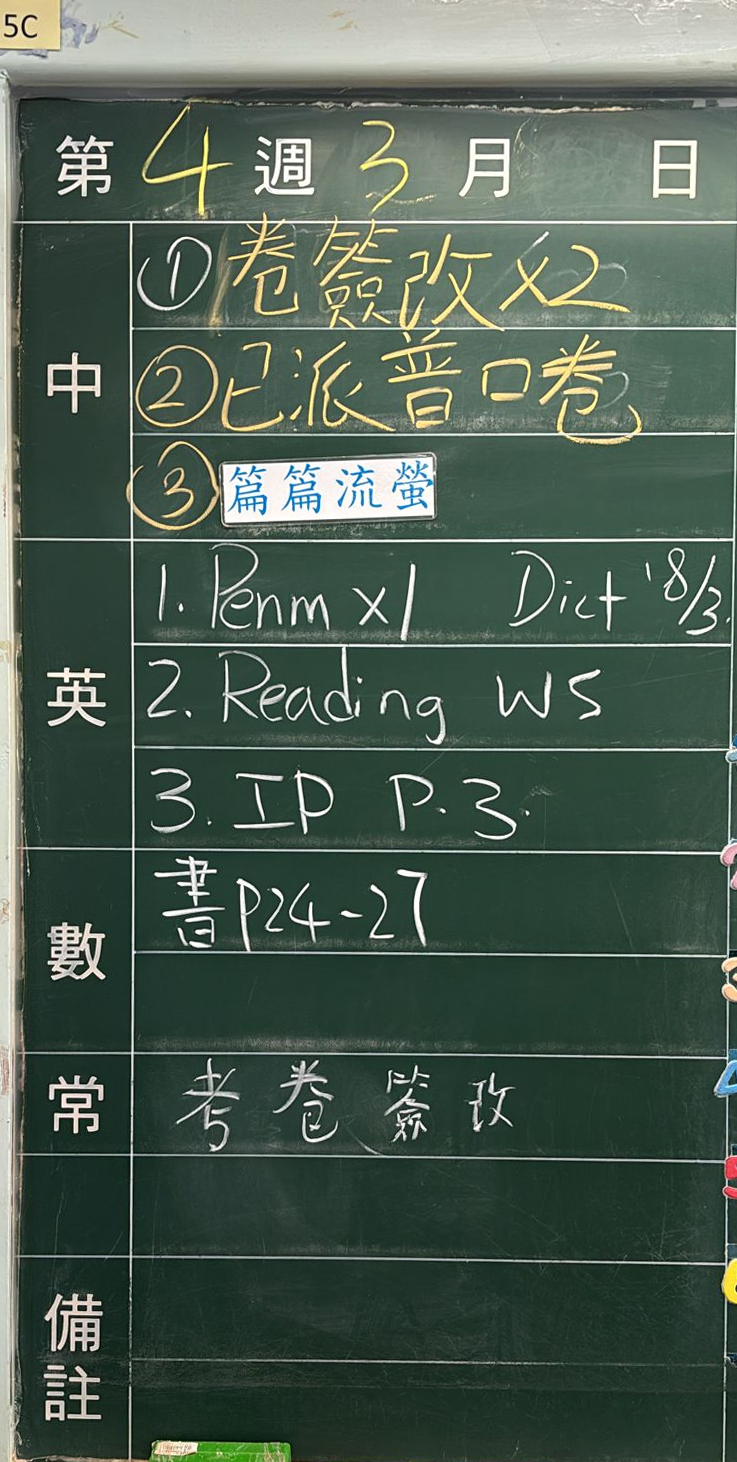 5C
第 4 週 3 月 日
中
① 卷簽改 x2
② 已派普口卷
③ 篇篇流螢
英
1. Penm x1 Dict '8/3.
2. Reading WS
3. IP P.3.
數
書P24-27
常
考卷簽改
備註